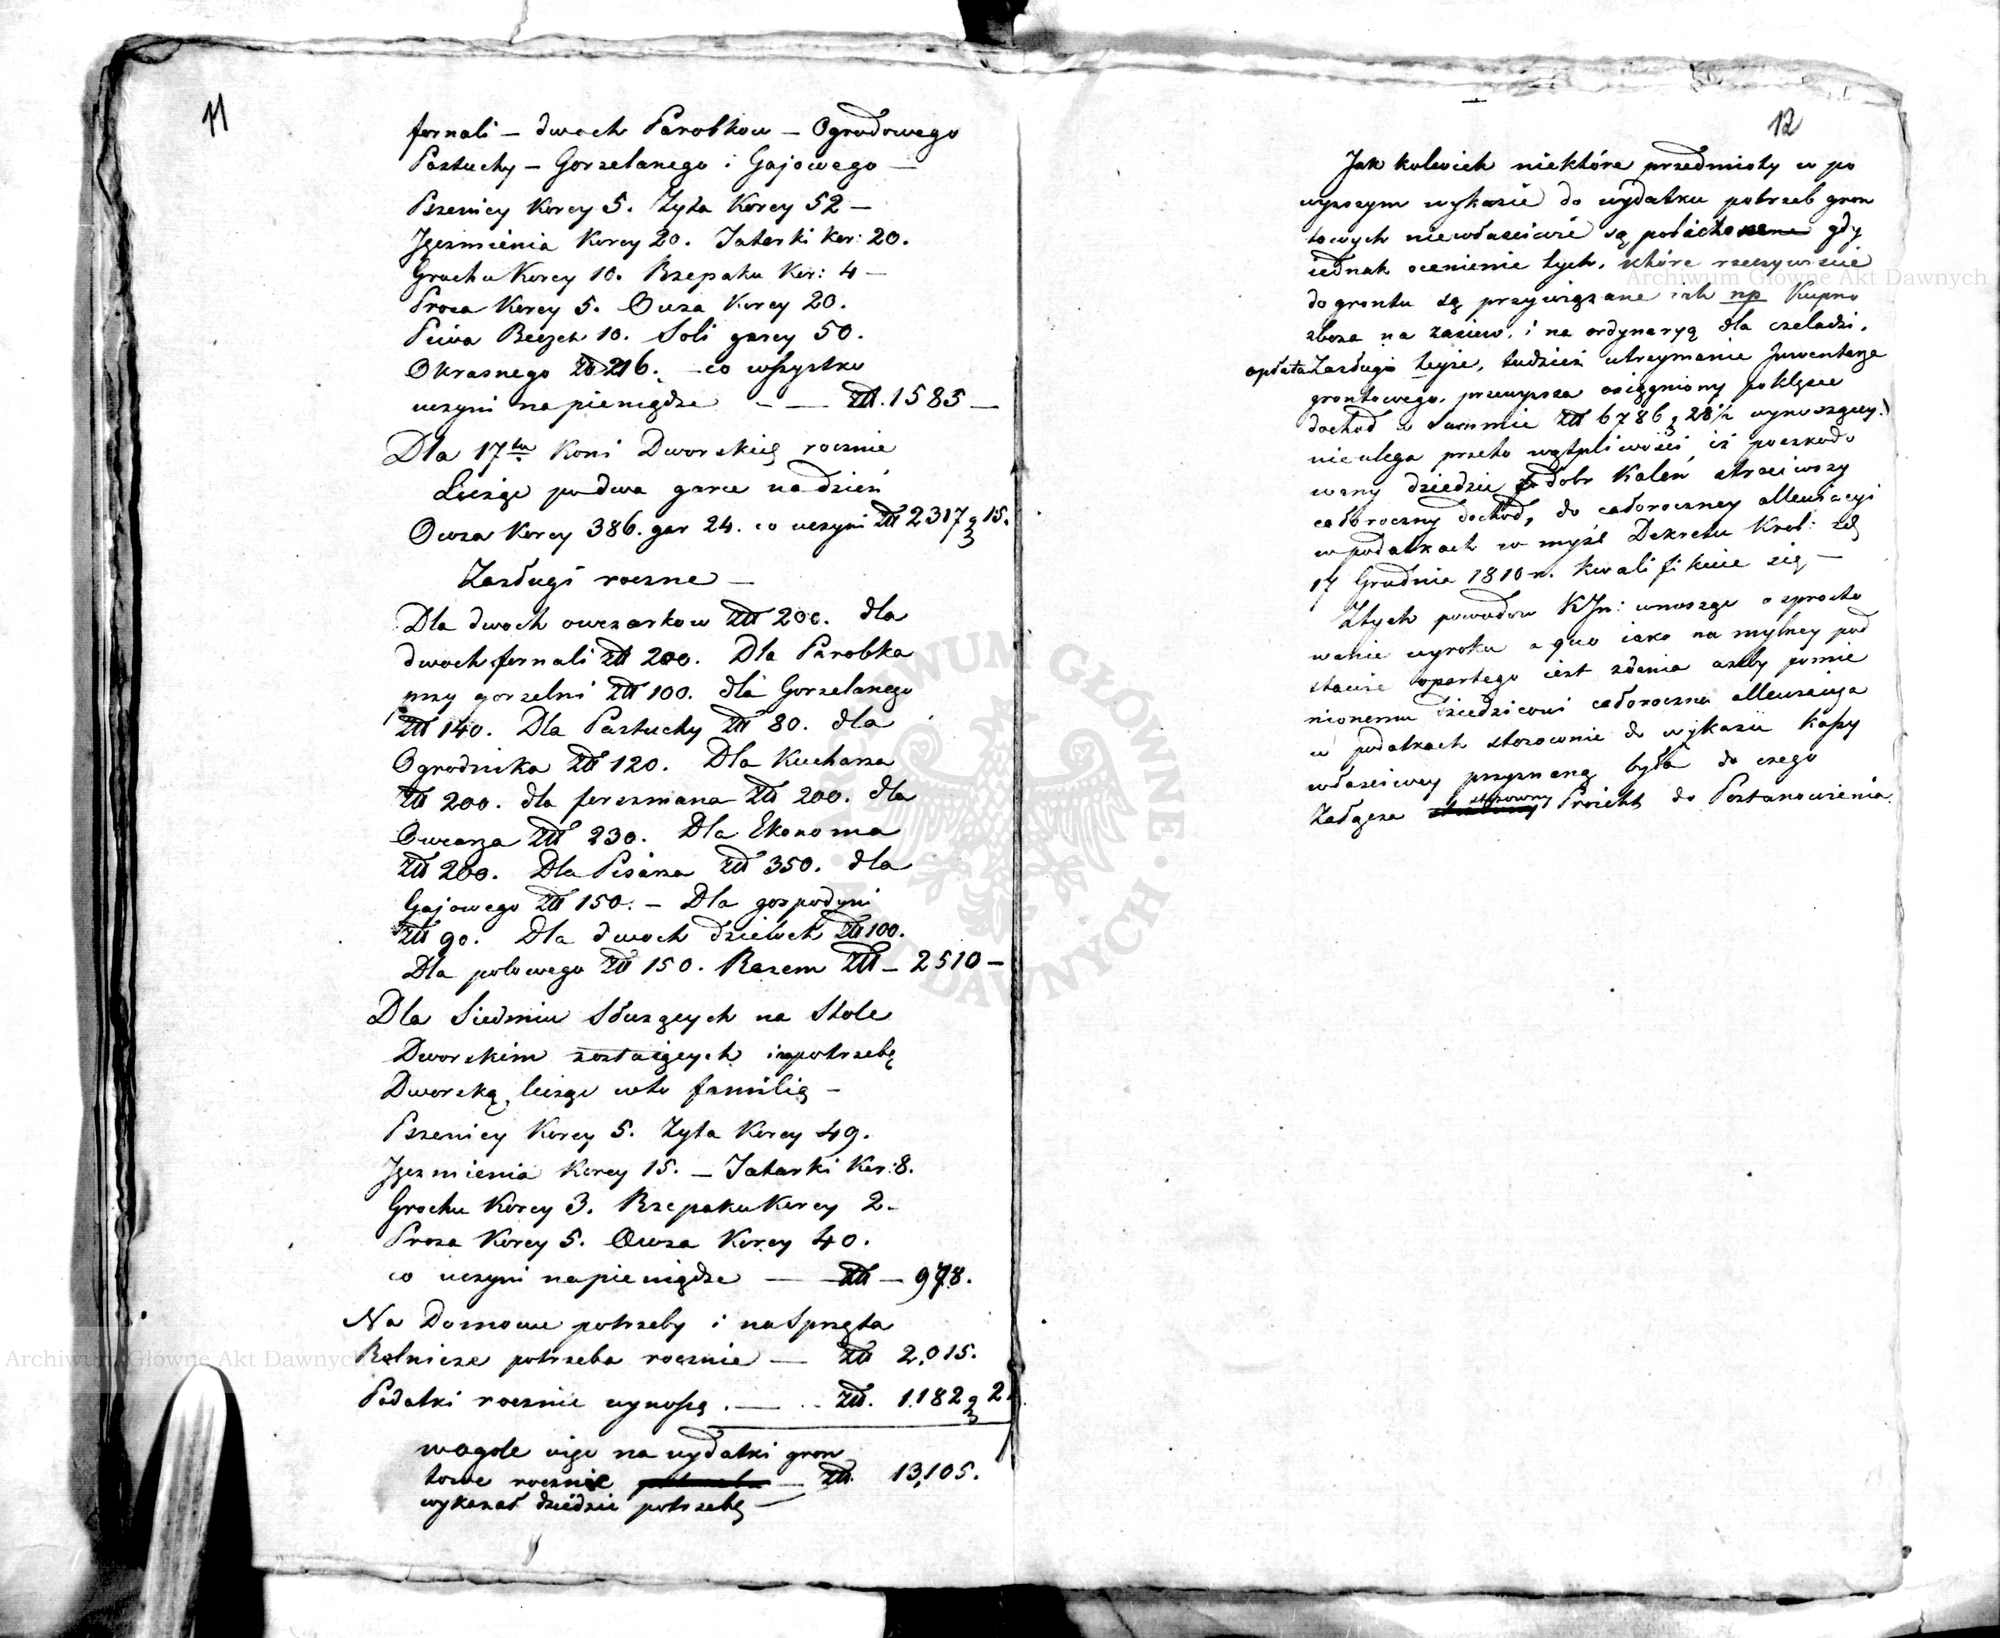 11
fornali – dwoch Parobkow – Ogrodowego
Pastuchy – Gorzelanego i Gajowego –
Pszenicy Korcy 5. Zyta Korcy 52 –
Jęczmienia Korcy 20. Tatarki Kor: 20.
Grochu Korcy 10. Rzepaku Kor: 4 –
Prosa Korcy 5. Owsa Korcy 20.
Piwa Beczek 10. Soli garcy 50.
Okrasnego Złł 216. – co wszystko
uczyni na pieniądze – – Złł. 1585 –
Dla 17tu Koni Dworskię rocznie
Licząc po dwa garce na dzień
Owsa Korcy 386. gar 24. co uczyni Złł 2317 g 15.
Zasługi roczne –
Dla dwoch owczarkow Złł 200. dla
dwoch fornali Złł 200. Dla Parobka
przy gorzelni Złł 100. dla Gorzelanego
Złł 140. Dla Pastuchy Złł 80. dla
Ogrodnika Złł 120. Dla Kucharza
Złł 200. dla forszmana Złł 200. dla
Owcarza Złł 230. Dla Ekonoma
Złł 200. Dla Pisarza Złł 350. dla
Gajowego Złł 150. – Dla gospodyni
Złł 90. Dla dwoch dziewek Złł 100.
Dla polowego Złł 150. Razem Złł – 2510 –
Dla Siedmiu Służących na Stole
Dworskim zostaiących i na potrzebę
Dworską, licząc w to familią –
Pszenicy Korcy 5. Zyta Korcy 49.
Jęczmienia Korcy 15. – Tatarki Kor: 8.
Grochu Korcy 3. Rzepaku Korcy 2 –
Prosa Korcy 5. Owsa Korcy 40.
co uczyni na pieniądze – Złł – 978.
Na Domowe potrzeby i na Sprzęta
Rolnicze potrzeba rocznie – Złł 2,015.
Podatki rocznie wynoszą . – Złł. 1,182 g 2
wogole więc na wydatki gron
towe rocznie – Złł. 13,105.
wykazał dziedzic potrzebę –
12
Jak kolwiek niektóre przedmioty w po
wyższym wykazie do wydatku potrzeb gron
towych niewłaściwie są policzone gdy
iednak ocenienie tych, które rzeczywiście
do grontu są przywiązane iak np Kupno
zboża na zasiew, i na ordynaryą dla czeladzi,
opłata Zasługi teyże, tudzież utrzymanie Inwentarza
grontowego, przewyższa osiągniony po klęsce
dochod w Summie Złł 6786 g 28½ wynoszący.
nieulega przeto wątpliwości, iż poszkodo
wany dziedzic dobr Kaleń straciwszy
całoroczny dochod, do całoroczney allewiacyi
w podatkach w myśl Dekretu Krol: zd
17 Grudnia 1810 r. kwalifikuie się –
Z tych powodow K Jn: wnosząc o sprosto
wanie wyroku a quo iako na mylney pod
stawie opartego iest zdania ażeby pomie
nionemu dziedzicowi całoroczna allewiacya
w podatkach stosownie do wykazu kassy
właściwey przyznaną była do czego
Załącza stosowny Proiekt do Postanowienia.
Archiwum Główne Akt Dawnych
Archiwum Główne Akt Dawnych
ARCHIWUM GŁÓWNE AKT DAWNYCH